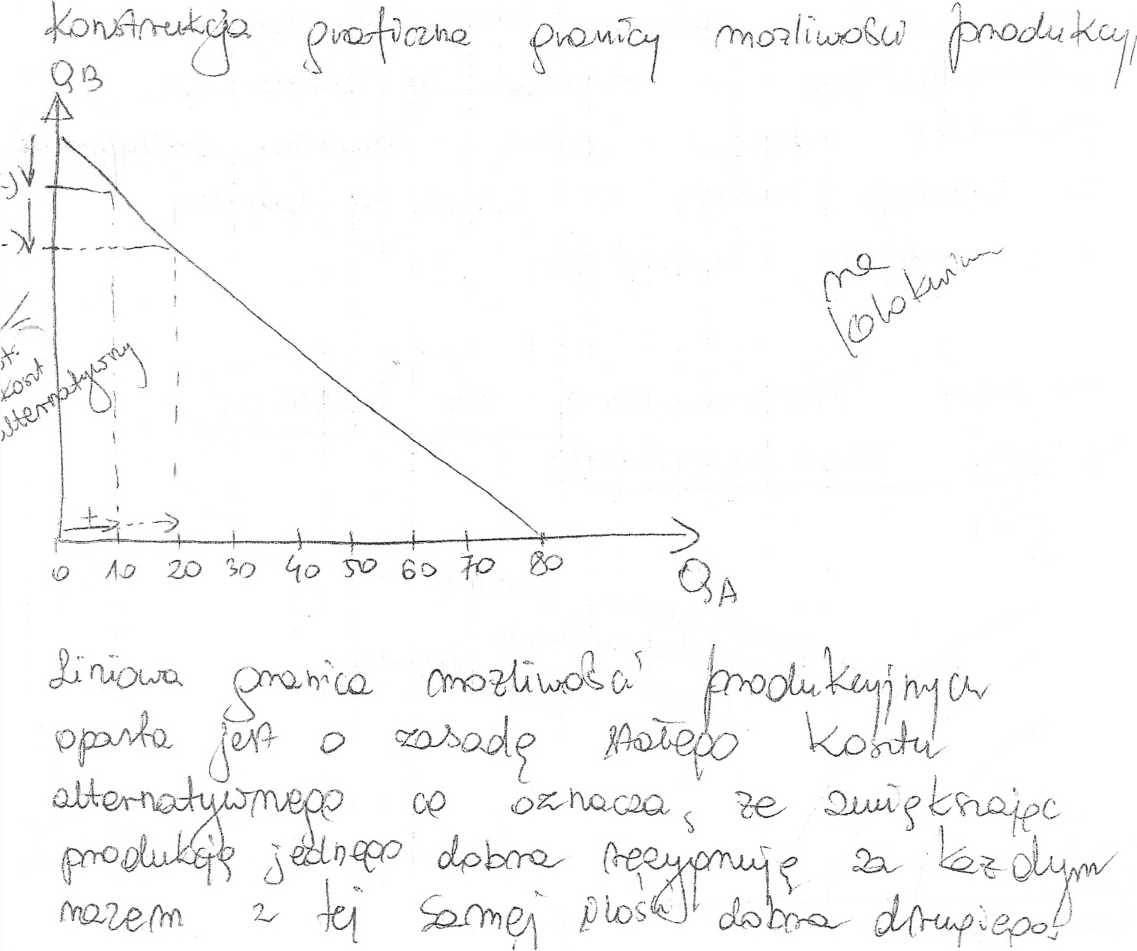 Konstrukcja graficzna granicy możliwości produkcyj
QB
-)
-)
st.
koszt
alternatywny
na
kolokwium
+
0 10 20 30 40 50 60 70 80
QA
Liniowa granica możliwości produkcyjnych
oparta jest o zasadę stałego kosztu
alternatywnego co oznacza, że zwiększając
produkcję jednego dobra rezygnuję za każdym
razem z tej samej ilości dobra drugiego.